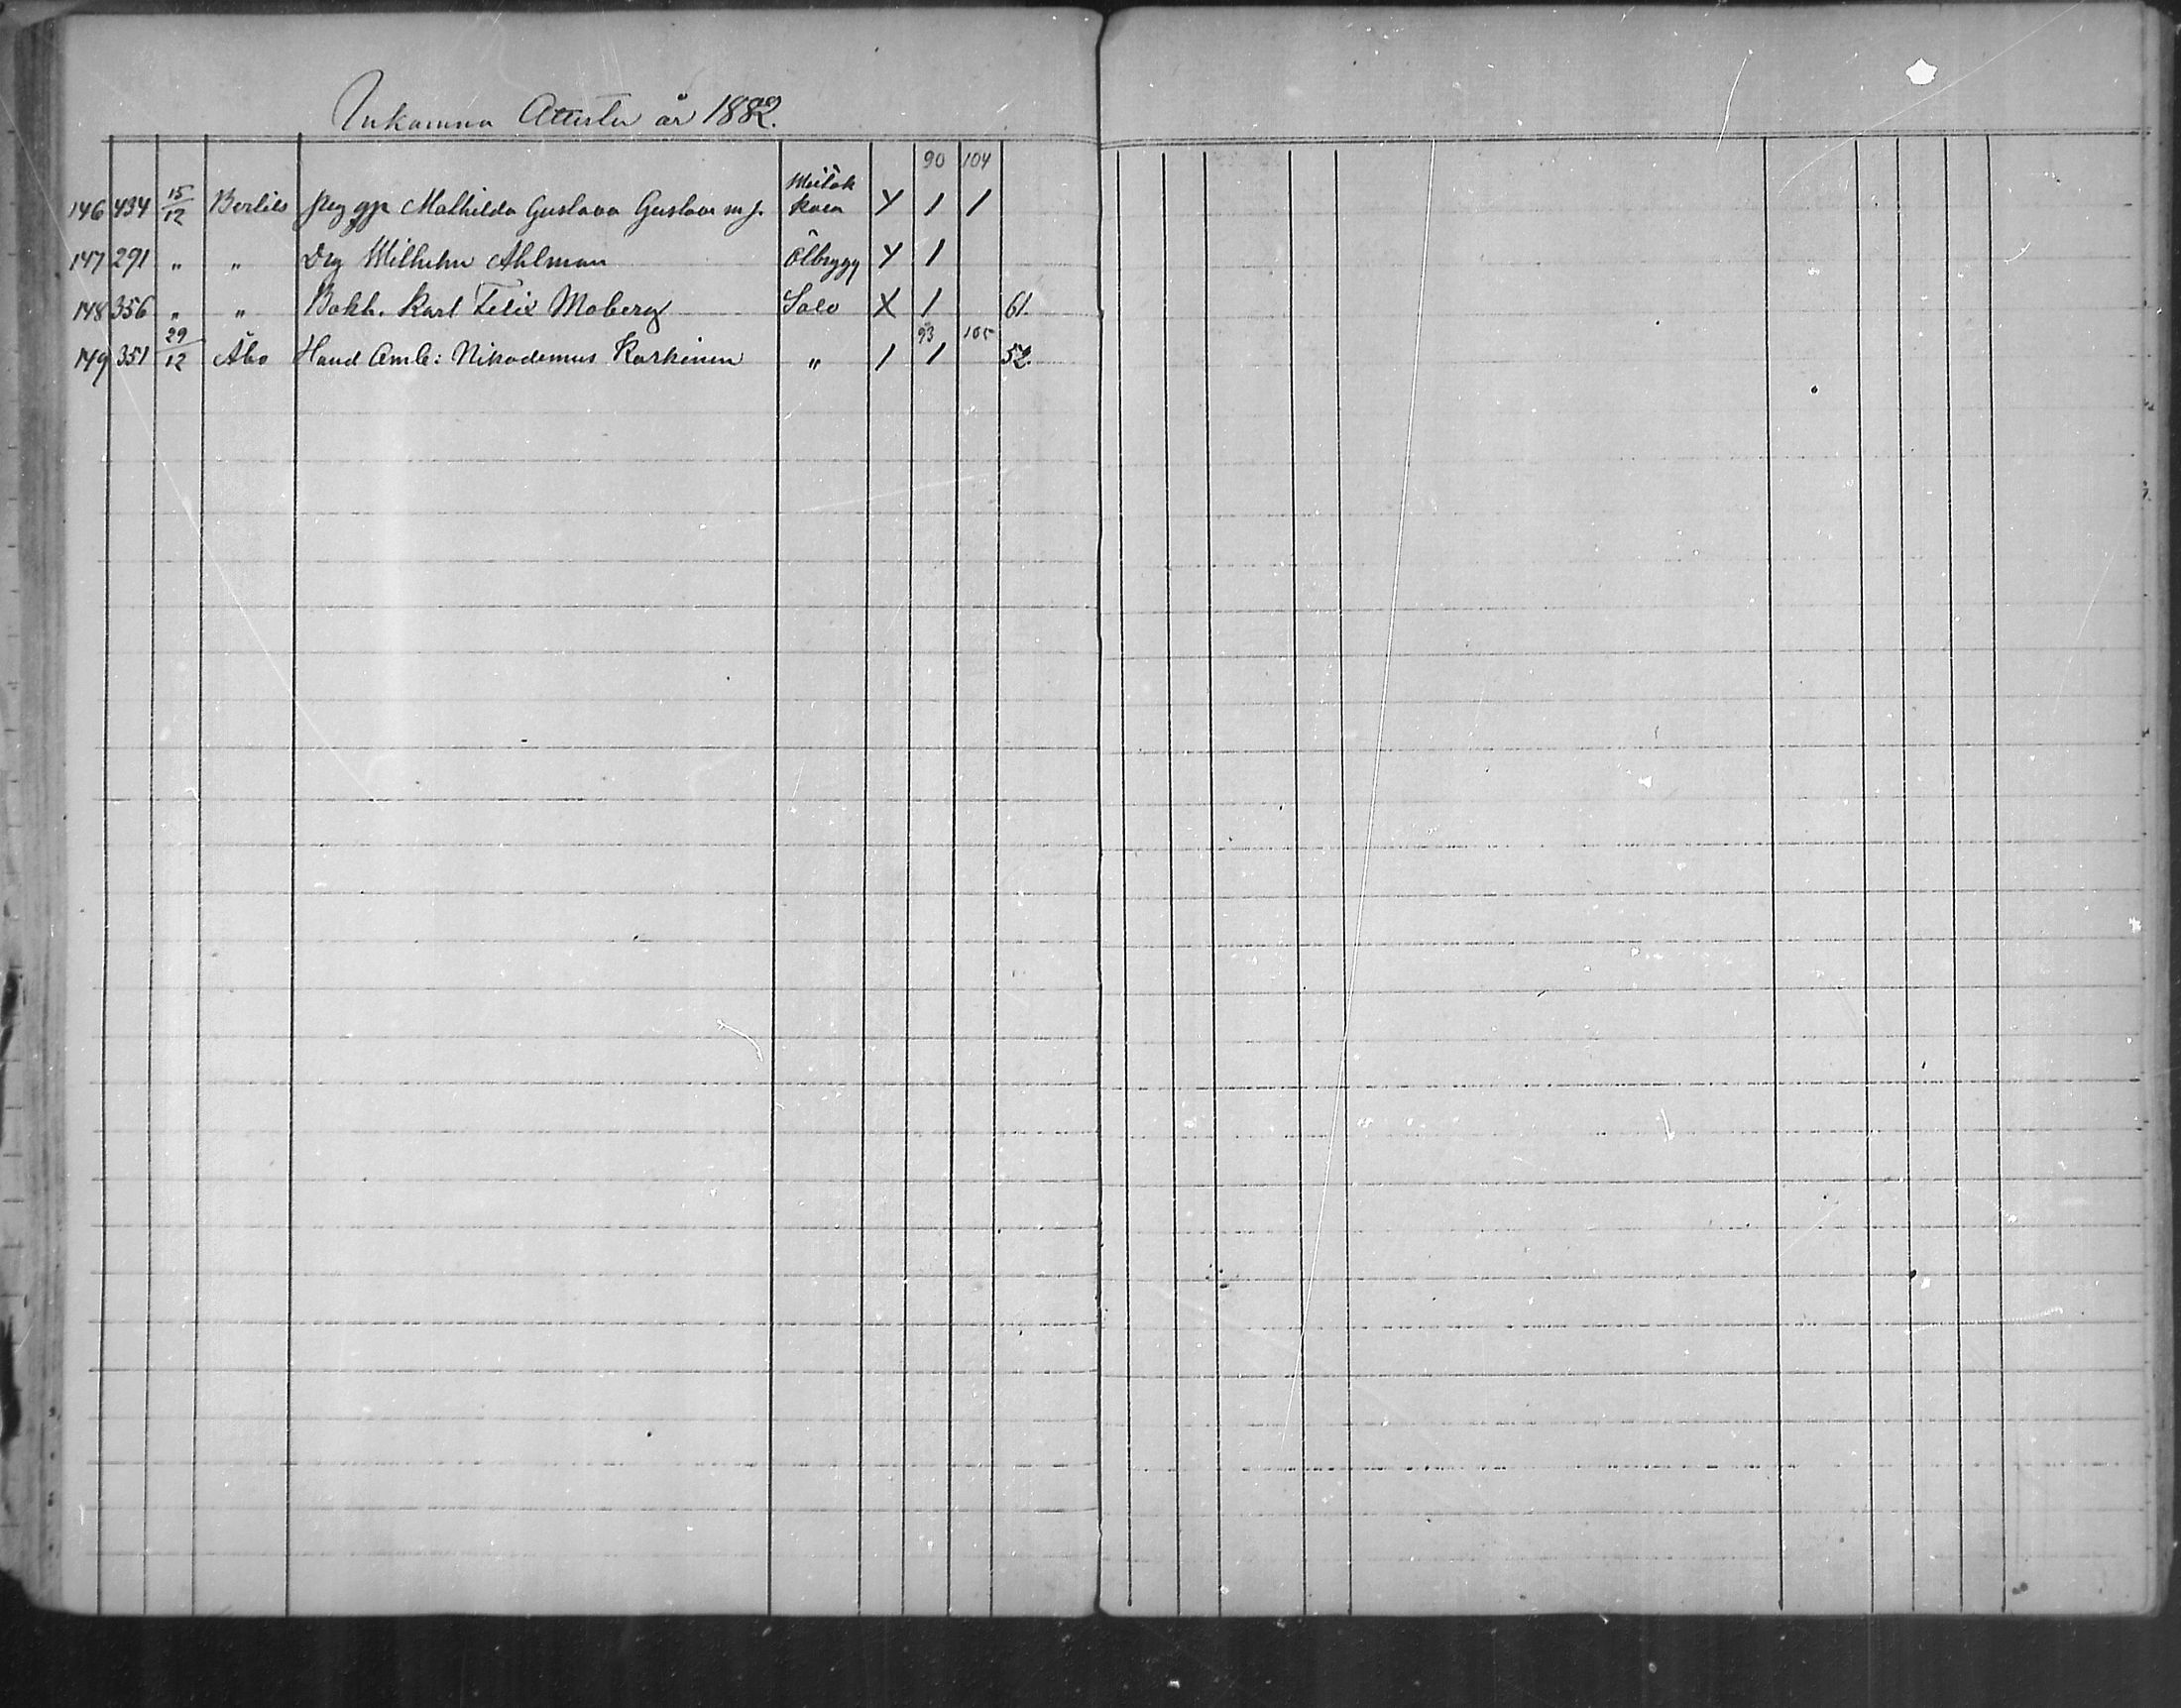 Inkomna Attester år 1882.
90 104
146 434 15/12 Bertils Pig gp Mathilda Gustava Gustavs m f. koen Y 1 1
147 291 " " Drg Wilhelm Ahlman Ölbrygg Y 1
148 356 " " Bokh. Karl Felix Moberg Salo X 1 61.
93 105
149 351 29/12 Åbo Hand Amb: Nikodemus Karkinen " 1 1 52.